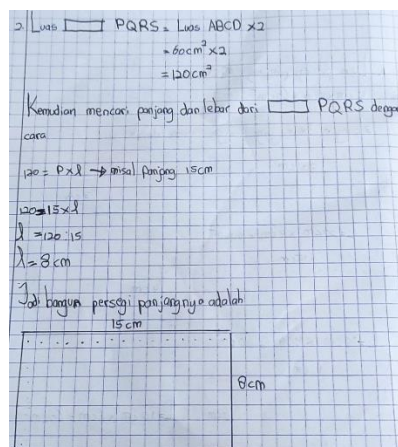 2. Luas ▭ PQRS = Luas ABCD ×2
= 60cm² ×2
= 120cm²
Kemudian mencari panjang dan lebar dari ▭ PQRS denga
cara
120 = P×l → misal panjang 15cm
120=15×l
l =120:15
l = 8 cm
Jadi bangun persegi panjangnya adalah
15cm
8cm